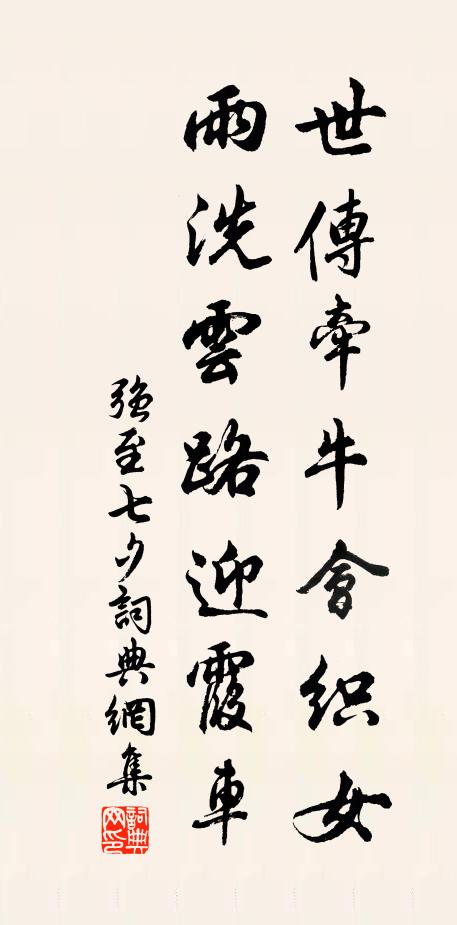 世傳牽牛會織女
雨洗雲路迎霞車
強至七夕詞典網集
詞典網印